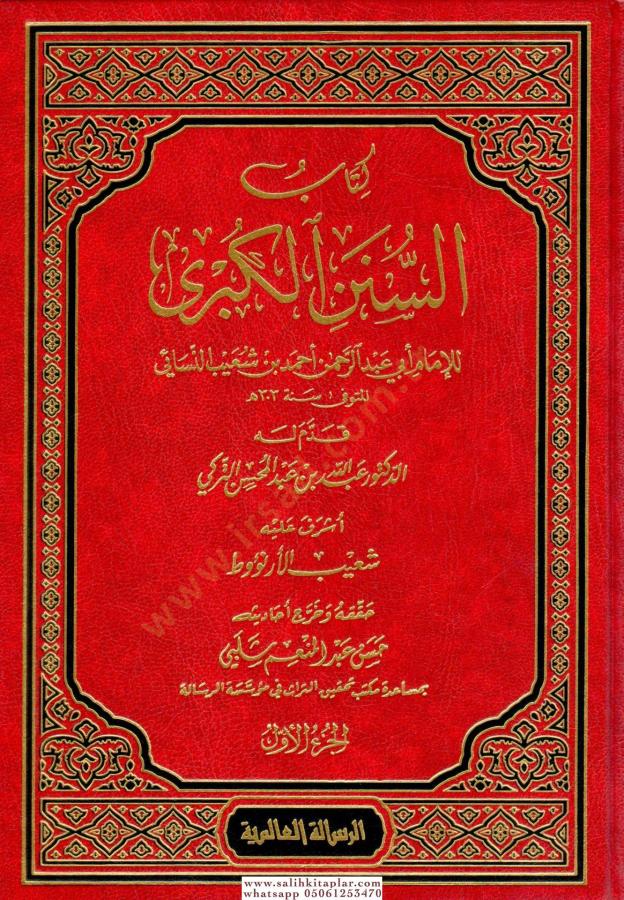 كِتَابُ
السُّنَنِ ٱلْكُبْرَى
للإمام أبي عبد الرحمن أحمد بن شعيب النسائي
المتوفى سنة ٣٠٣هـ
قدّم له
الدكتور عبد الله بن عبد المحسن التركي
أشرف عليه
شعيب الأرنؤوط
حققه وخرّج أحاديثه
حسن عبد المنعم شلبي
بمساعدة مكتب تحقيق التراث في مؤسسة الرسالة
الجزء الأول
الرسالة العالمية
www.salihkitaplar.com
whatsapp 05061253470